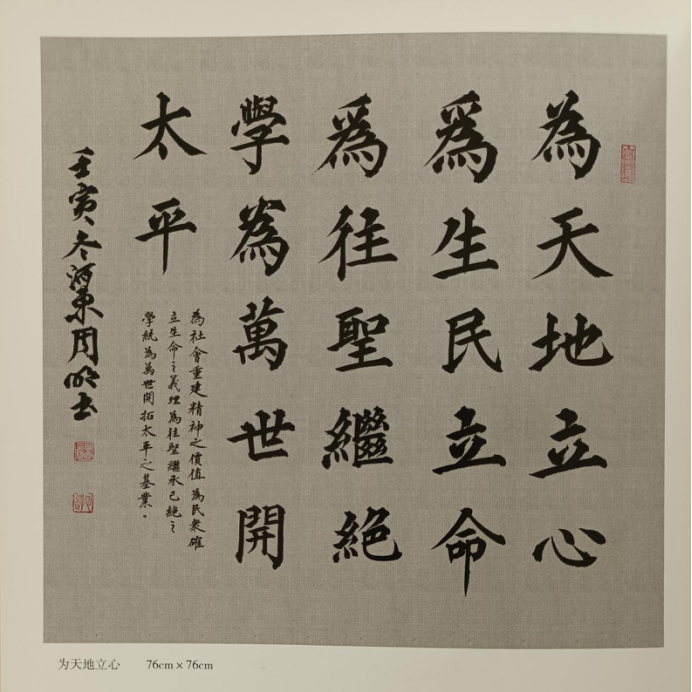 為天地立心
爲生民立命
爲往聖繼絕
學為萬世開
太平
為社會重建精神之價值為民衆確
立生命之義理為往聖繼承已絕之
學統為萬世開拓太平之基業。
壬寅冬河東周明書
为天地立心 76cm×76cm